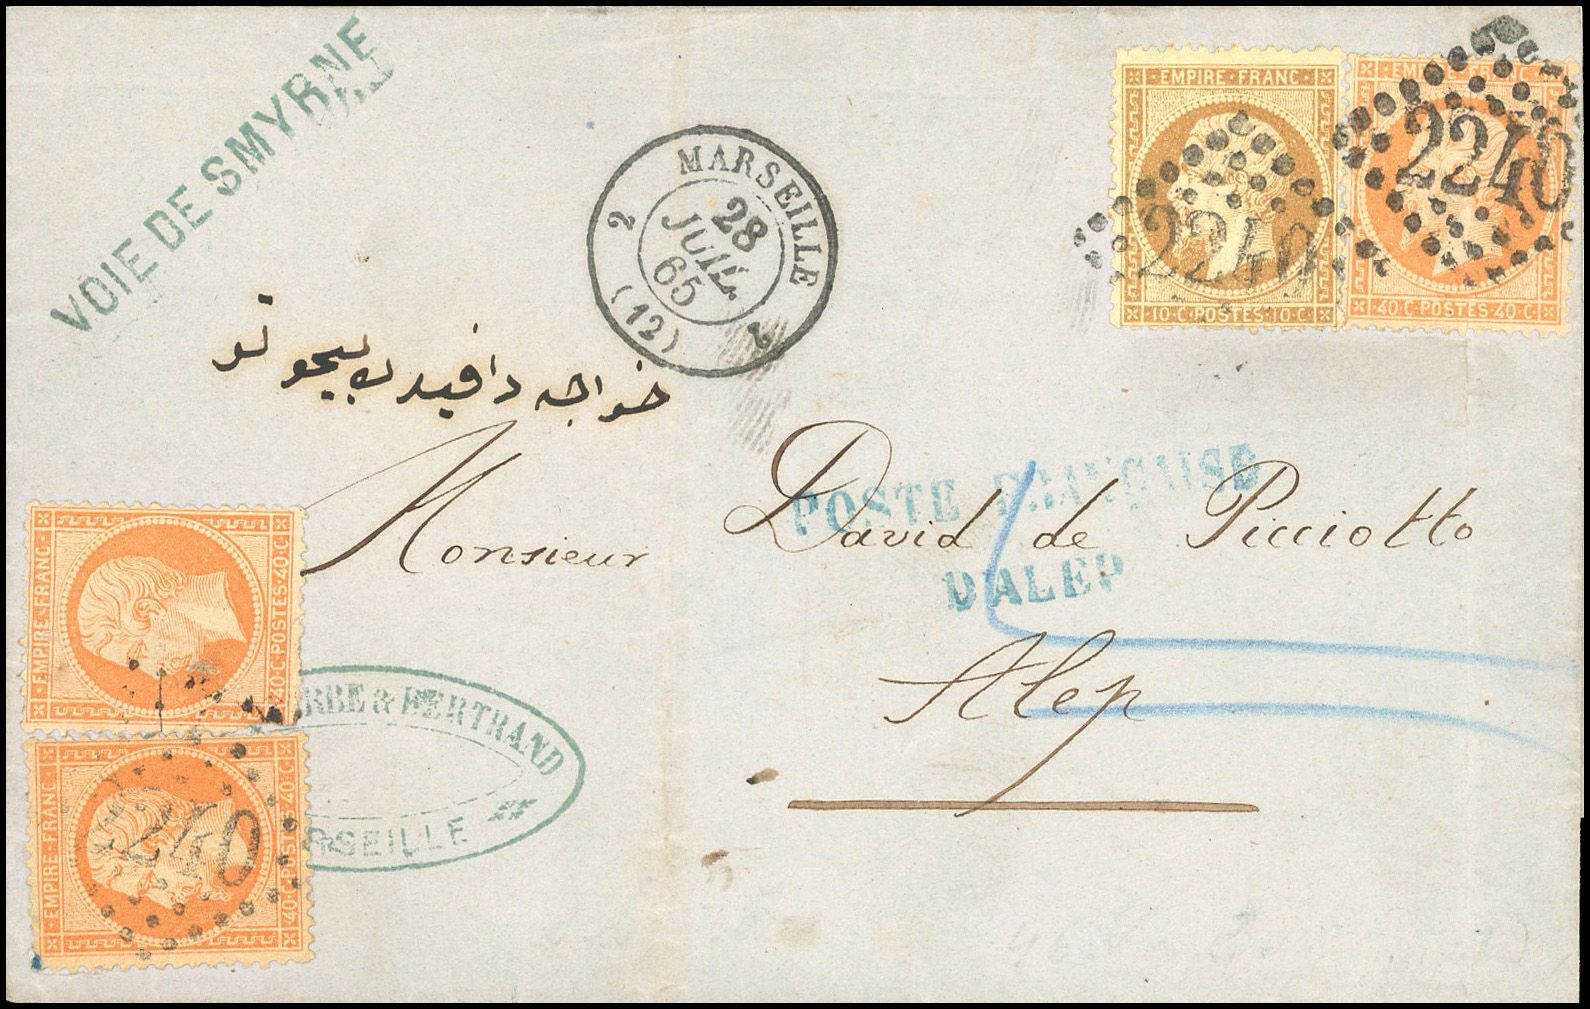 VOIE DE SMYRNE
MARSEILLE
28
JUIL.
65
2
(12)
EMPIRE·FRANC
10·C·POSTES·10·C
2240
EMPIRE·FRANC
40·C·POSTES·40·C
2240
خواجه دافيد
Monsieur David de Picciotto
POSTE FRANÇAISE
D'ALEP
Alep
EMPIRE·FRANC
40·C·POSTES·40·C
EMPIRE·FRANC
40·C·POSTES·40·C
2240
RBE & BERTRAND
RSEILLE